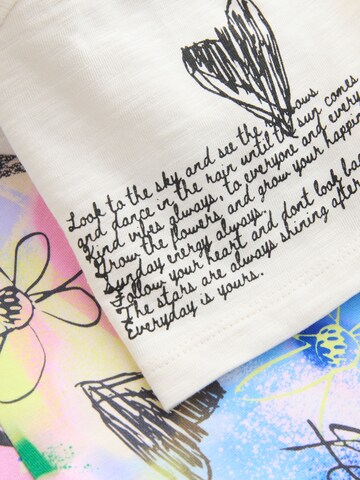 Look to the sky and see the rainbows
and dance in the rain until the sun comes
Kind vibes always, to everyone and every
Grow the flowers, and grow your happin
Sunday energy always.
Follow your heart and dont look bac
The stars are always shining after
Everyday is yours.